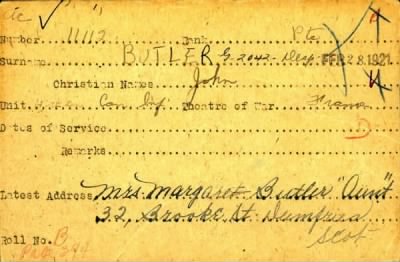 Number 11112 Rank Pte
Surname BUTLER G 2042 - Des FEB 28 1921
Christian Names John
Unit Can Inf. Theatre of War France
Dates of Service D
Remarks
Latest Address Mrs Margaret Butler "Aunt"
32, Brooke St. Dumfries
Scot
Roll No. B